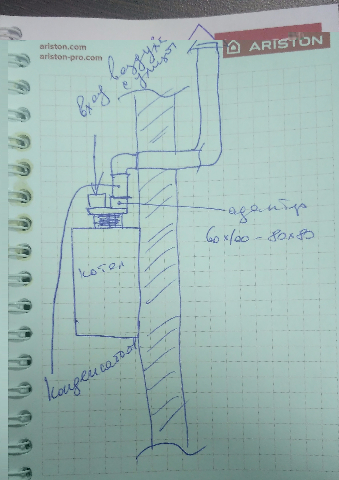 ariston.com
ariston-pro.com
ARISTON
вход воздуха
с улицы
адаптер
60x100 - 80x80
котел
конденсатоот